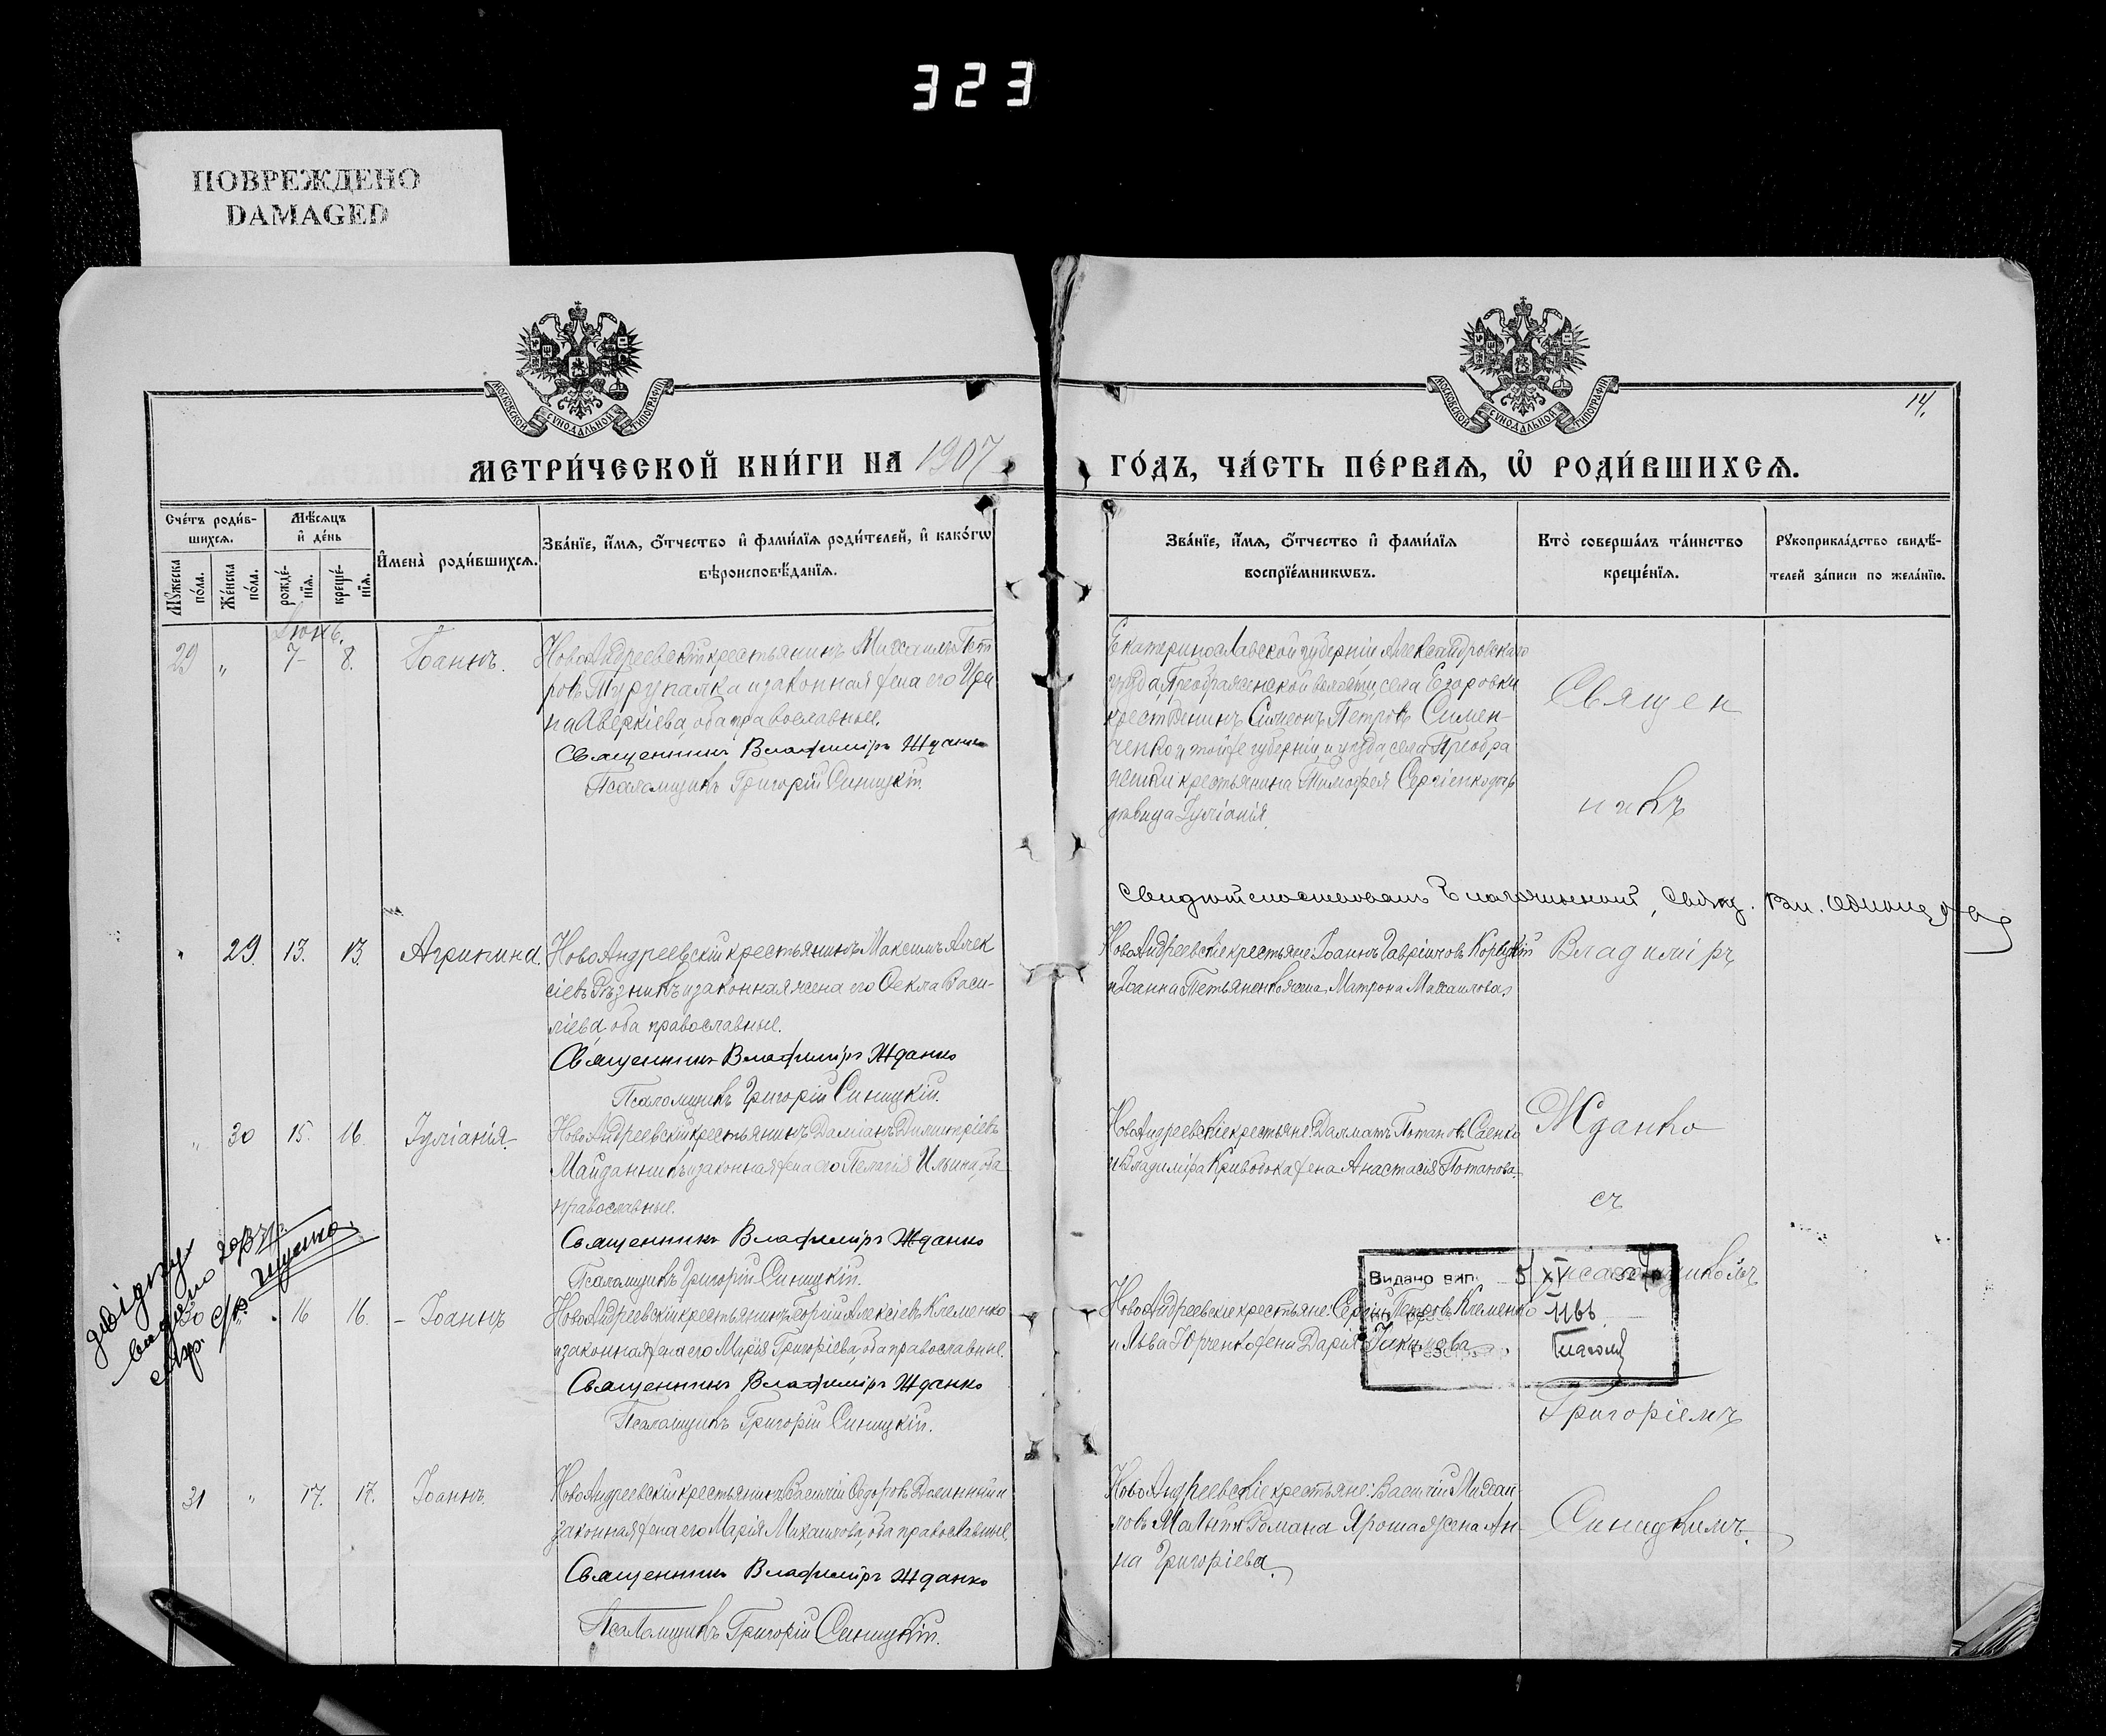 323
ПОВРЕЖДЕНО
DAMAGED
МОСКОВСКОЙ СѴНОДАЛЬНОЙ ТИПОГРАФІИ
МОСКОВСКОЙ СѴНОДАЛЬНОЙ ТИПОГРАФІИ
14.
МЕТРИ́ЧЕСКОЙ КНИ́ГИ НА 1907
ГО́ДЪ, ЧА́СТЬ ПЕ́РВАѦ, Ѡ҆ РОДИ́ВШИХСѦ.
Сче́тъ роди́в-
шихсѧ.
Мѣ́сѧцъ
и҆ де́нь
И҆мена̀ роди́вшихсѧ.
Зва́нїе, и҆́мѧ, ѻ҆́тчество и҆ фами́лїѧ роди́телей, и҆ како́гѡ
вѣроисповѣ́данїѧ.
Мꙋ́жеска
по́ла.
Же́нска
по́ла.
рожде́-
нїѧ.
креще́-
нїѧ.
Зва́нїе, и҆́мѧ, ѻ҆́тчество и҆ фами́лїѧ
воспрїе́мникѡвъ.
Кто̀ соверша́лъ та́инство
креще́нїѧ.
Рꙋкоприкла́дство свидѣ́-
телей за́писи по жела́нїю.
Іюнь.
29 " 7- 8. Іоаннъ.
НовоАндреевскій крестьянинъ Михаилъ Пет
ровъ Турупалка и законная жена его Ири
на Аверкіева, оба православные.
Священникъ Владиміръ Жданко
Псаломщикъ Григорій Синицкій.
Екатеринославской губерніи Александровскаго
уѣзда, Преображенской волости, села Егоровки
крестьянинъ Симеонъ Петровъ Симен-
ченко и той же губерніи, и уѣзда, села Преобра
женки крестьянина Тимофея Сергіенко дочь
дѣвица Іуліанія.
Священ
никъ
Свидѣтельствовалъ Благочинный, Свящ. Вл.
" 29. 13. 13. Агрипина.
НовоАндреевскій крестьянинъ Максимъ Алек
сіевъ Рѣзникъ и законная жена его Ѳекла Васи-
ліева, оба православные.
Священникъ Владиміръ Жданко
Псаломщикъ Григорій Синицкій.
НовоАндреевскіе крестьяне: Іоаннъ Гавріиловъ Корецкій
и Іоанна Петьяненко жена Матрона Михаилова.
Владиміръ
" 30 15. 16. Іуліанія.
НовоАндреевскій крестьянинъ Даміанъ Димитріевъ
Майданникъ и законная жена его Пелагія Ильина, оба
православные.
Священникъ Владиміръ Жданко
Псаломщикъ Григорій Синицкій.
НовоАндреевскіе крестьяне: Далматъ Потаповъ Саенко
и Владиміра Кривобока жена Анастасія Потапова.
Жданко
съ
псаломщикомъ
довідку
видано
30 " 16 16. - Іоаннъ
НовоАндреевскій крестьянинъ Георгій Алексіевъ Клеменко
и законная жена его Марія Григоріева, оба православные.
Священникъ Владиміръ Жданко
Псаломщикъ Григорій Синицкій.
НовоАндреевскіе крестьяне: Сергій Петровъ Клеменко
и Льва Юрченко жена Дарія
Видано вип.
1166
Григоріемъ
31 " 17. 17. Іоаннъ.
НовоАндреевскій крестьянинъ Василій Ѳедоровъ Долинный и
законная жена его Марія Михаилова, оба православные.
Священникъ Владиміръ Жданко
Псаломщикъ Григорій Синицкій.
НовоАндреевскіе крестьяне: Василій Михаи-
ловъ Малый и Романа Яроша жена Ан-
на Григоріева.
Синицкимъ.